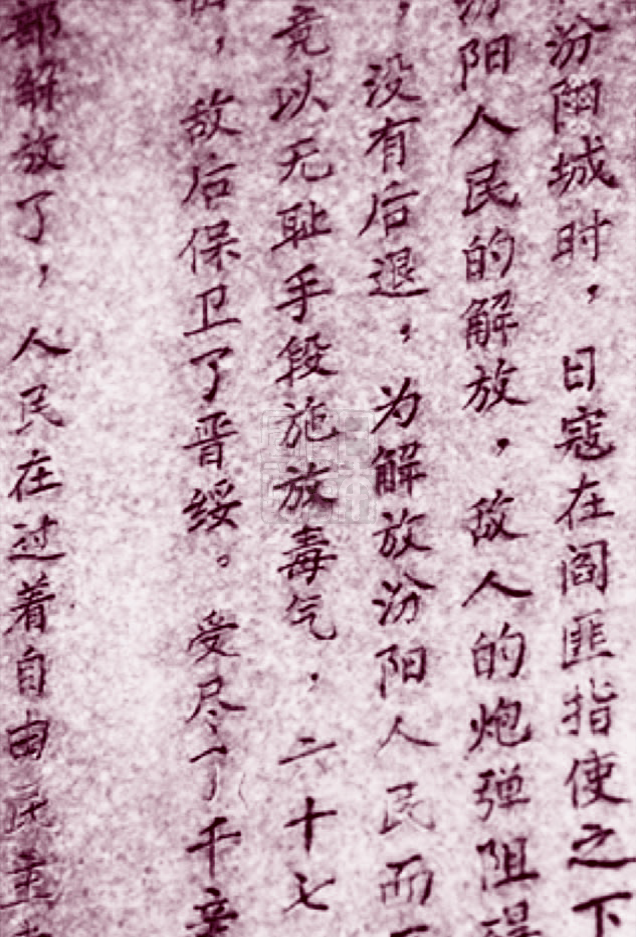 汾阳城时，日寇在阎匪指使之下
汾阳人民的解放，敌人的炮弹阻碍
，没有后退，为解放汾阳人民而
竟以无耻手段施放毒气，二十七
，敌后保卫了晋绥。受尽了千辛
都解放了，人民在过着自由民主